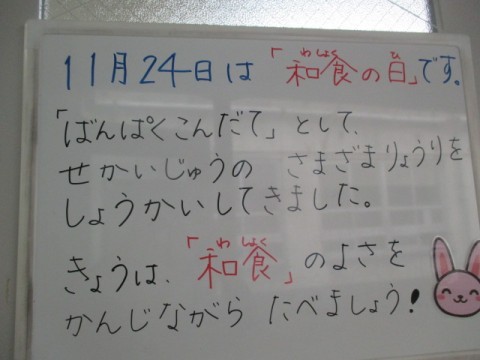 11月24日は「和食の日」です。
「ばんぱくこんだて」として、
せかいじゅうの さまざまりょうりを
しょうかいしてきました。
きょうは、「和食」のよさを
かんじながら たべましょう!